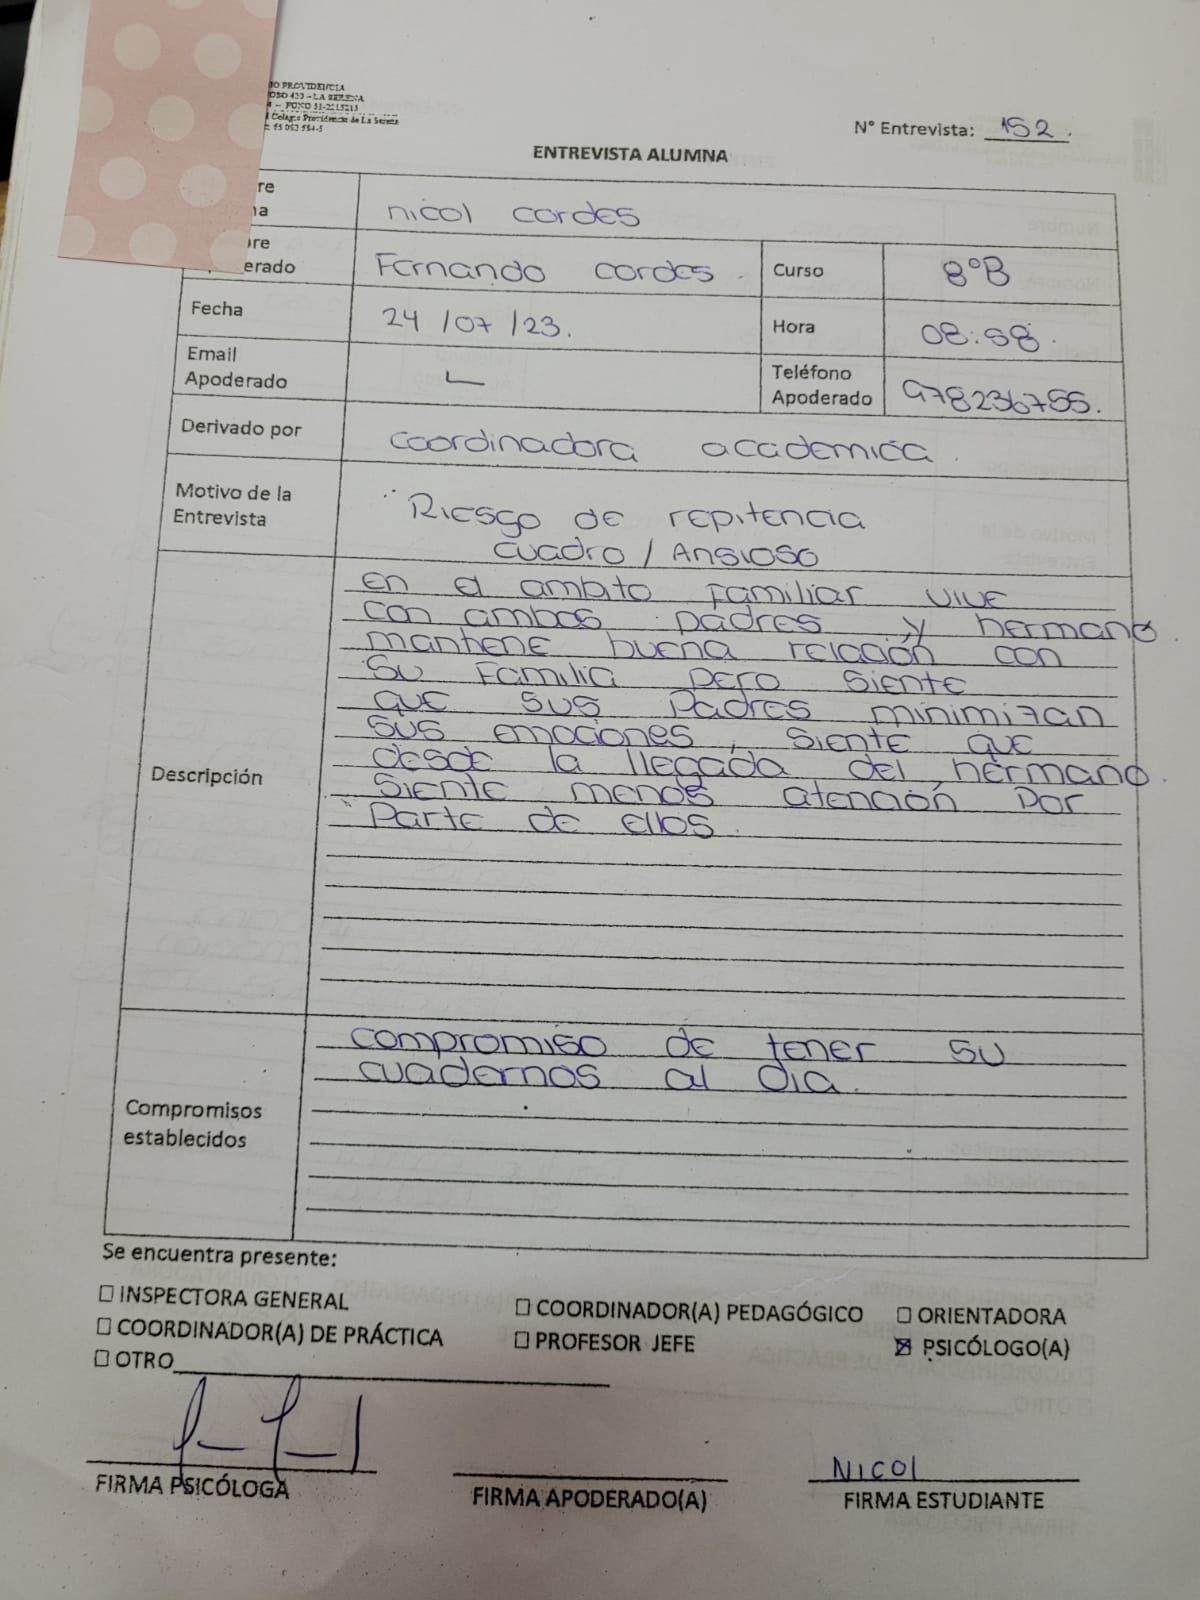 IO PROVIDENCIA
OSO 420 – LA SERENA
– FONO 51-2215213
Colegio Providencia de La Serena
N° Entrevista: 152.
ENTREVISTA ALUMNA
re
a nicol cordes
re
erado Fernando cordes. Curso 8°B
Fecha 24 /07 /23. Hora 08:58.
Email
Apoderado Teléfono
Apoderado 978236755.
Derivado por coordinadora academica.
Motivo de la
Entrevista Riesgo de repitencia
cuadro / Ansioso
Descripción
en el ambito familiar vive
con ambos padres y hermano.
mantiene buena relación con
su familia pero siente
que sus padres minimizan
sus emociones, siente que
desde la llegada del hermano.
siente menos atención por
parte de ellos.
Compromisos
establecidos
compromiso de tener su
cuadernos al dia.
Se encuentra presente:
☐ INSPECTORA GENERAL ☐ COORDINADOR(A) PEDAGÓGICO ☐ ORIENTADORA
☐ COORDINADOR(A) DE PRÁCTICA ☐ PROFESOR JEFE ☒ PSICÓLOGO(A)
☐ OTRO
Nicol
FIRMA PSICÓLOGA FIRMA APODERADO(A) FIRMA ESTUDIANTE